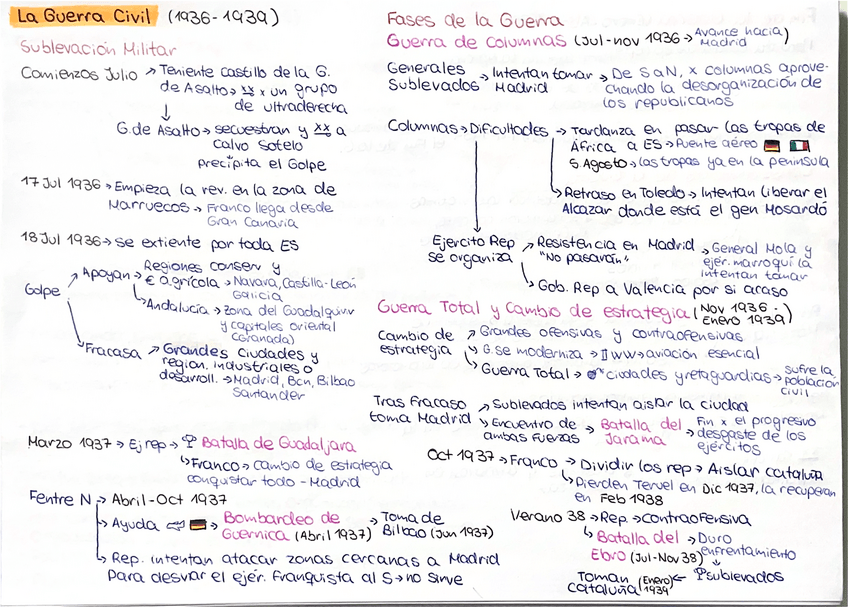 La Guerra Civil (1936-1939)
Sublevación Militar
Comienzos Julio → Teniente castillo de la G.
de Asalto → xx x un grupo
de ultraderecha
↓
G. de Asalto → secuestran y xx a
Calvo Sotelo
↓
precipita el Golpe
17 Jul 1936 → Empieza la rev. en la zona de
Marruecos → Franco llega desde
Gran Canaria
18 Jul 1936 → se extiente por toda ES
Golpe
Apoyan → Regiones conserv y
€ agrícola → Navara, Castilla-León
Galicia
Andalucía → zona del Guadalquivir
y capitales oriental
(Granada)
Fracasa → Grandes ciudades y
region. industriales o
desarroll. → Madrid, Bcn, Bilbao
Santander
Marzo 1937 → Ej rep → Batalla de Guadaljara
↳ Franco → cambio de estrategia
conquistar todo - Madrid
Fentre N → Abril-Oct 1937
→ Ayuda → Bombardeo de
Guernica (Abril 1937) → Toma de
Bilbao (Jun 1937)
→ Rep. intentan atacar zonas cercanas a Madrid
para desviar el ejér. franquista al S → no sirve
Fases de la Guerra
Guerra de columnas (Jul-nov 1936 → Avance hacia
Madrid)
Generales
Sublevados → Intentan tomar
Madrid → De S a N, x columnas aprove-
chando la desorganización de
los republicanos
Columnas → Dificultades → Tardanza en pasar las tropas de
África a ES → Puente aéreo
5 Agosto → las tropas ya en la península
↳ Retraso en Toledo → Intentan liberar el
Alcazar donde está el gen Mosardó
Ejercito Rep
se organiza → Resistencia en Madrid
"No pasarán" → General Mola y
ejér. marroquí la
intentan tomar
↳ Gob. Rep a Valencia por si acaso
Guerra Total y Cambio de estrategia (Nov 1936 -
Enero 1939)
Cambio de
estrategia → Grandes ofensivas y contraofensivas
↳ G. se moderniza → II WW → aviación esencial
↳ Guerra Total → ciudades y retaguardias → sufre la
población
civil
Tras Fracaso
toma Madrid → Sublevados intentan aislar la ciudad
↳ Encuentro de
ambas fuerzas → Batalla del
Jarama → Fin x el progresivo
desgaste de los
ejércitos
Oct 1937 → Franco → Dividir los rep → Aislar cataluña
↳ Pierden Teruel en Dic 1937, la recuperan
en Feb 1938
Verano 38 → Rep. → contraofensiva
↳ Batalla del
Ebro (Jul-Nov 38) → Duro
enfrentamiento
↓
sublevados
← Toman (Enero)
cataluña 1939